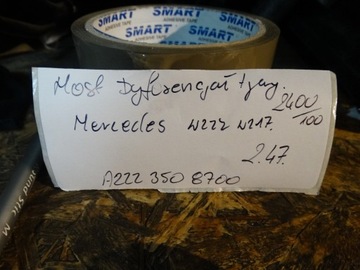 SMART SMART SMART
ADHESIVE TAPE
Most Dyferencjał tylny.
2400/100
Mercedes W222 W217.
2.47.
A222 350 8700